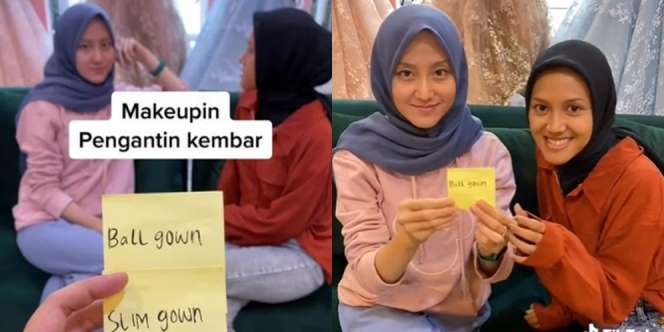 Makeupin
Pengantin kembar
Ball gown
SLIM gown
Ball gown